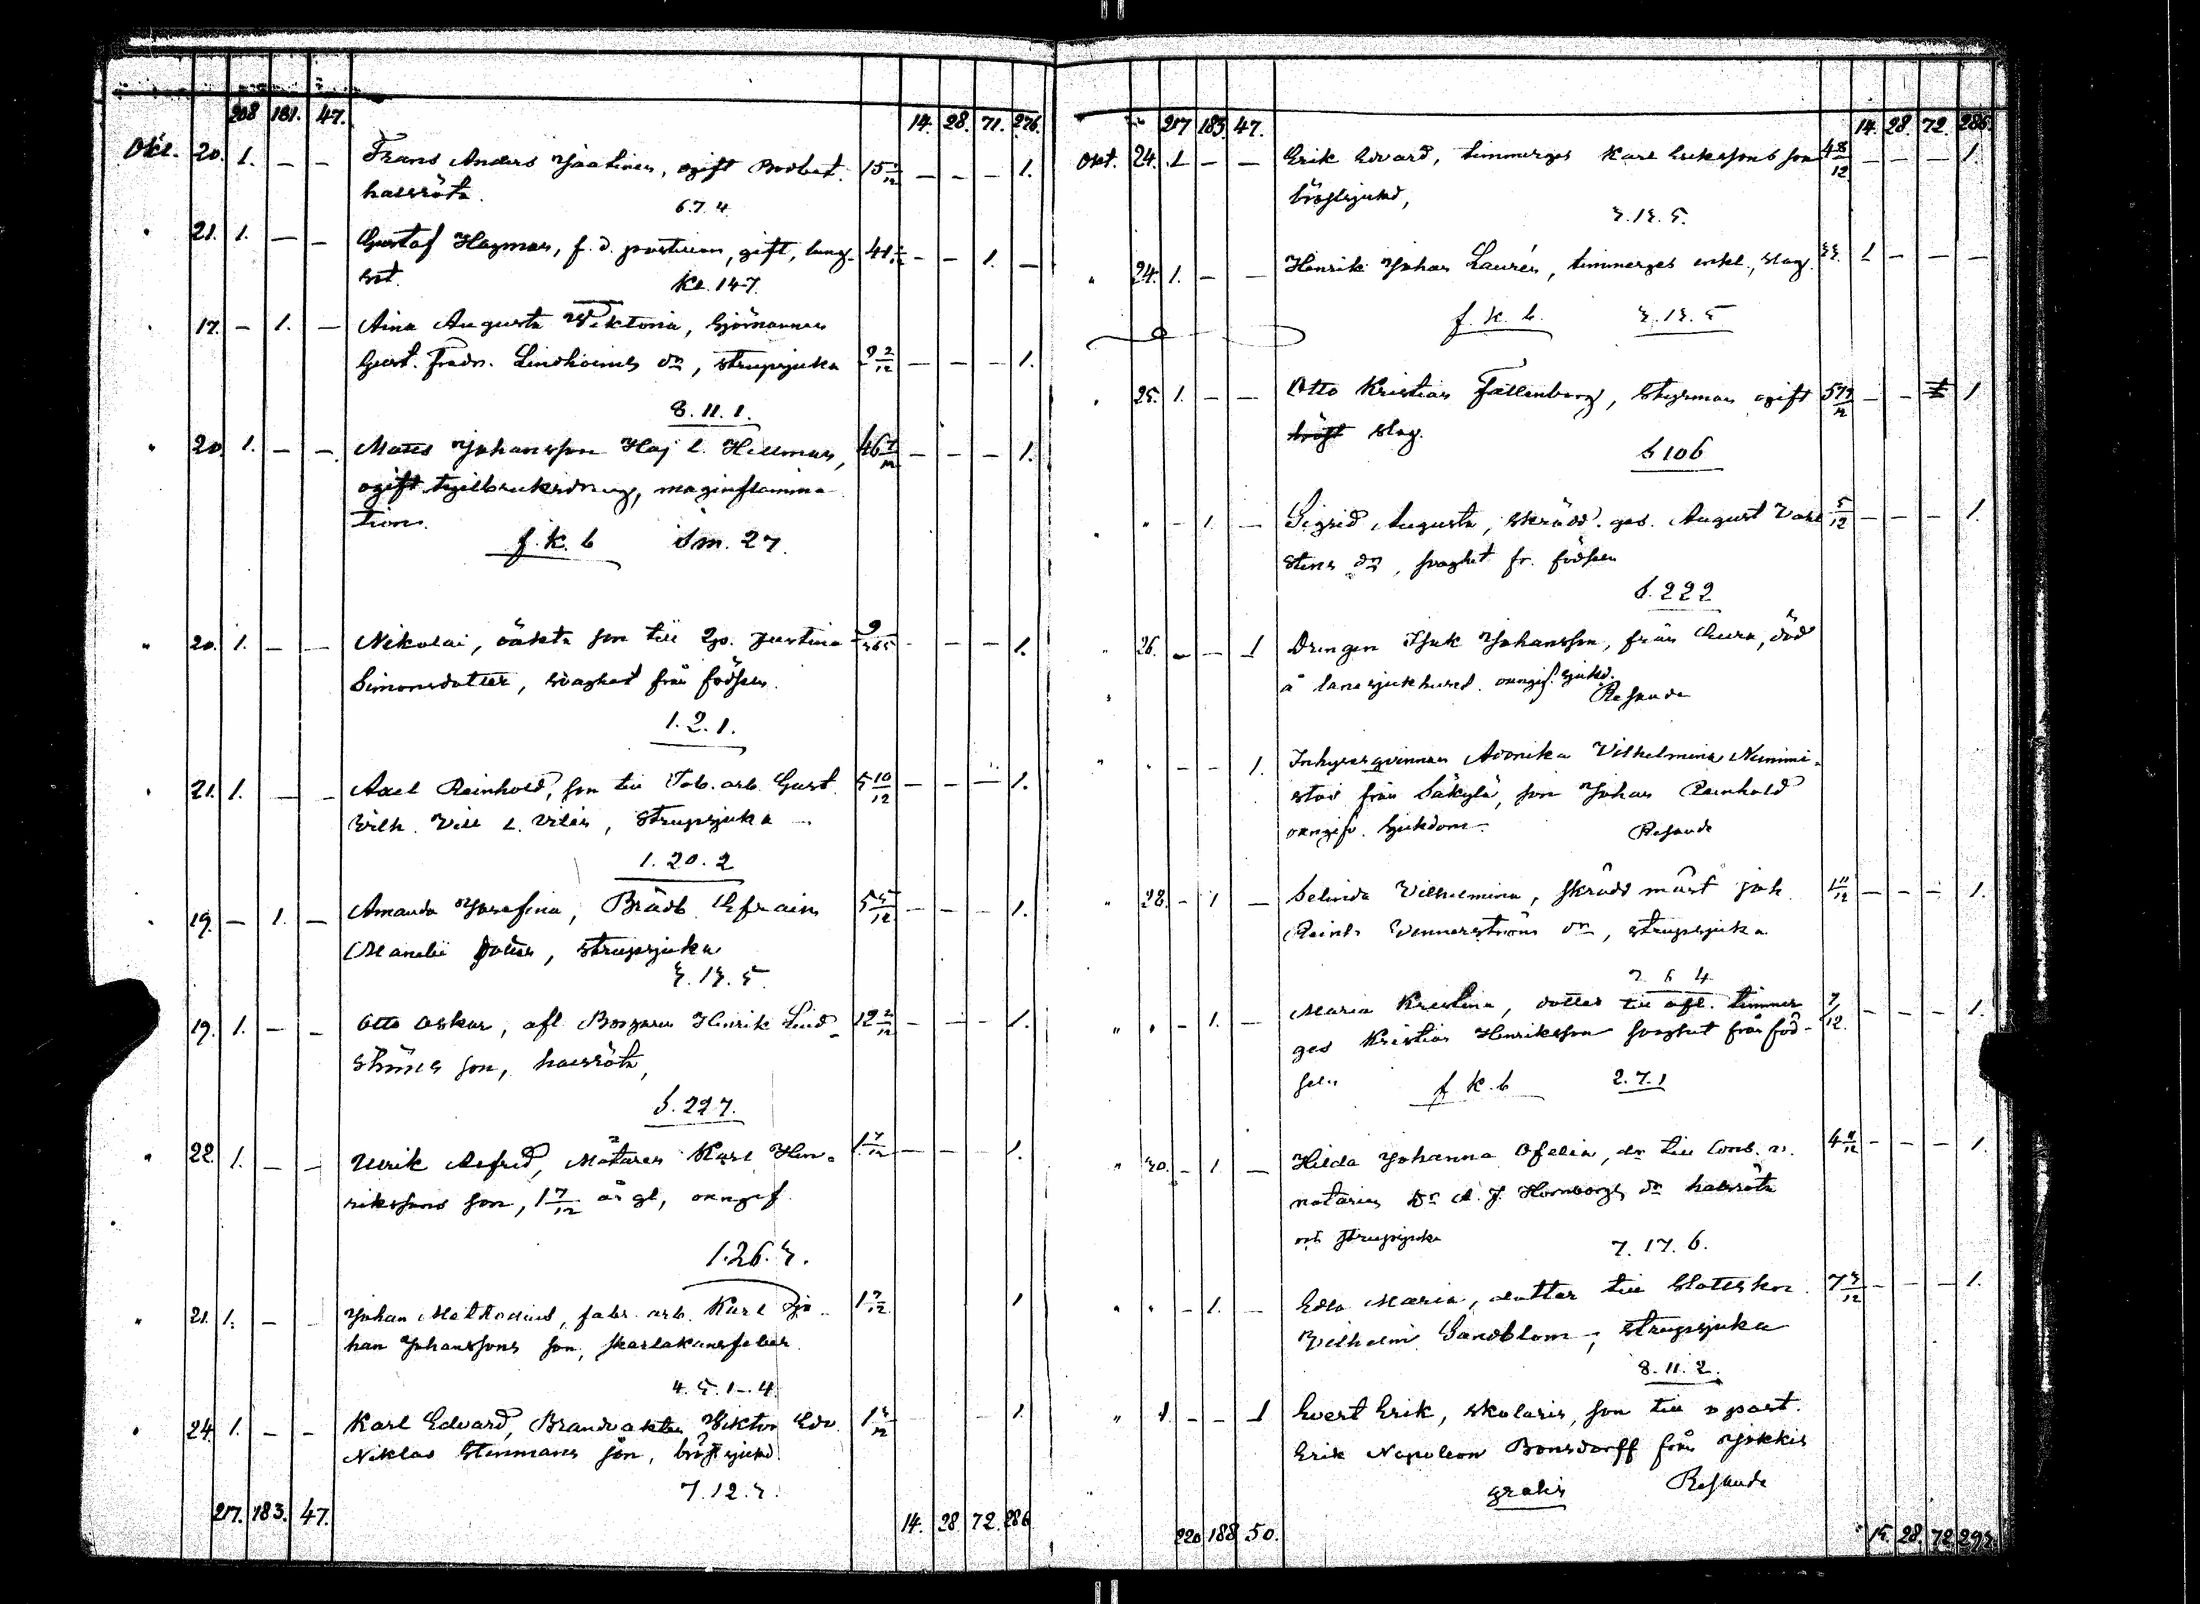 208 181. 47. 14. 28. 71. 276.
Okt. 20. 1. — — Frans Anders Jaatinen, ogift Bodbet. 15 — — — 1.
halsröta.
6.7.4
21. 1. — — Gustaf Hagman, f. d. postiljon, gift, lung- 41 — — 1. —
sot. Kl. 147.
17. — 1. — Aina Augusta Viktoria, Sjömannen
Gust. Fredr. Lindholms dr, strupsjuka 9 2/12 — — — 1.
8. 11. 1.
20 1. — — Matts Johansson Haj l. Hellman, 46 — — — 1.
ogift tegelbruksdräng, maginflamma-
tion.
f. k. b Sm. 27.
20. 1. — — Nikolai, oäkta son till Justina 9/365 — — — 1.
Simonsdotter, svaghet från födseln.
1. 2. 1.
21. 1. — — Axel Reinhold, son till Tob. arb. Gust. 5 10/12 — — — 1.
Vilh. Vill l. Vilén, strupsjuka
1. 20. 2
19. — 1. — Amanda Josefina, Efraim 5 5/12 — — — 1.
dotter, strupsjuka
3. 13. 5.
19. 1. — — Otto Oskar, afl. Borgaren Henrik Lind- 12 2/12 — — — 1.
ströms son, halsröta,
S. 227.
22. 1. — — Ulrik Alfred, Mätaren Karl Hen- 1 7/12 — — — 1.
rikssons son, 1 7/12 år gl, oangif.
1. 26. 3.
21. 1. — — Johan Methodius, fabr. arb. Karl Jo- 1 7/12 1
han Johanssons son, skarlakansfeber.
4. 5. 1–4.
24. 1. — — Karl Edvard, Brandvakten Viktor Edv. 1 3/12 1.
Niklas Stenmans son, bröstsjukd.
7. 12. 3.
217. 183. 47. 14. 28 72. 286
217 183 47. 14. 28. 72. 286.
Okt. 24. 1 — — Erik Edvard, timmerges Karl Erikssons son 4 8/12 — — — 1.
bröstsjukd,
3. 13. 5.
" 24. 1. — — Henrik Johan Laurén, timmerges enkl., slag. 33. 1 — — —
f. k. b. 3. 13. 5
25. 1. — — Otto Kristian Fallenberg, Styrman ogift 57 — — 1
bröst slag.
S 106
" – 1. — Sigrid Augusta, skrädd. ges. August Vahl- 5/12 — — — 1.
stens dr, svaghet fr. födseln
S. 222
26. — — 1 Drengen Isak Johansson, från Eura, död
å länesjukhuset. oangif. sjukd.
Resande
" – — 1. Inhysesqvinnan Vilhelmina Nummi-
från Säkylä, son Johan Reinhold
oangifv. Sjukdom. Resande
" 28. – 1 — Selinda Vilhelmina, skrädd. mäst. Joh. 1 11/12 — — — 1.
Reinh. Wennerströms dr, strupsjuka
" " – 1. — Maria Kristina, dotter till afl. timmer 7/12. — — — 1.
ges Kristian Henriksson svaghet från föd-
seln f. k. b 2. 7. 1
" 30. – 1. — Hilda Johanna Ofelia, dr till Cons. n. 4 11/12 – — — 1.
notarien Dr A. J. Hornborgs dr halsröta
och strupsjuka 7. 17. 6.
" " – 1. — Edla Maria, dotter till Slottskn. 7 3/12 — — — 1.
Vilhelm Sandblom, strupsjuka
8. 11. 2.
" 1. – — 1 Evert Erik, skolaris, son till v past.
Erik Napoleon Bonsdorff från Jokkis
gratis Resande
220 188 50. 15. 28. 72 293